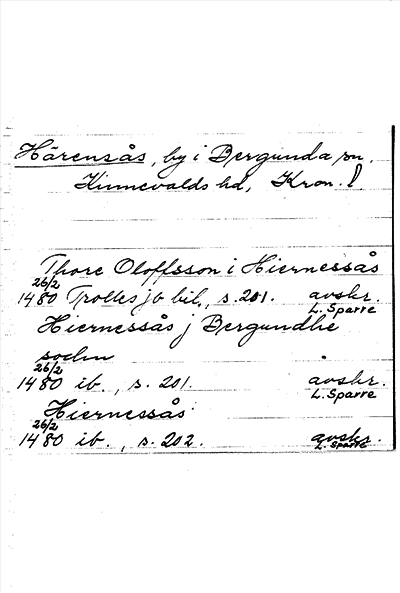 Härensås, by i Bergunda sn.
Kinnevalds hd, Kron. l.
Thore Oloffsson i Hiernessås
26/2
1480 Trolles jb bil., s. 201. avskr.
L. Sparre
Hiernessås j Bergundhe
sochn
26/2
1480 ib., s. 201. avskr.
L. Sparre
Hiernessås
26/2
1480 ib., s. 202. avskr.
L. Sparre